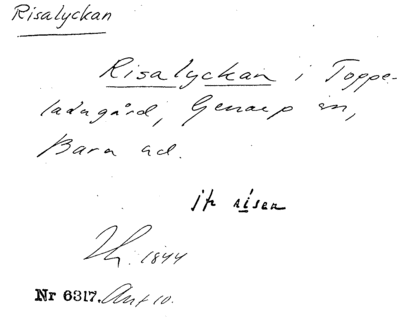 Risalyckan
Risalyckan i Toppe-
ladugård, Genarp sn,
Bara hd.
jfr risen
1844
Nr 6317. Ant 10.